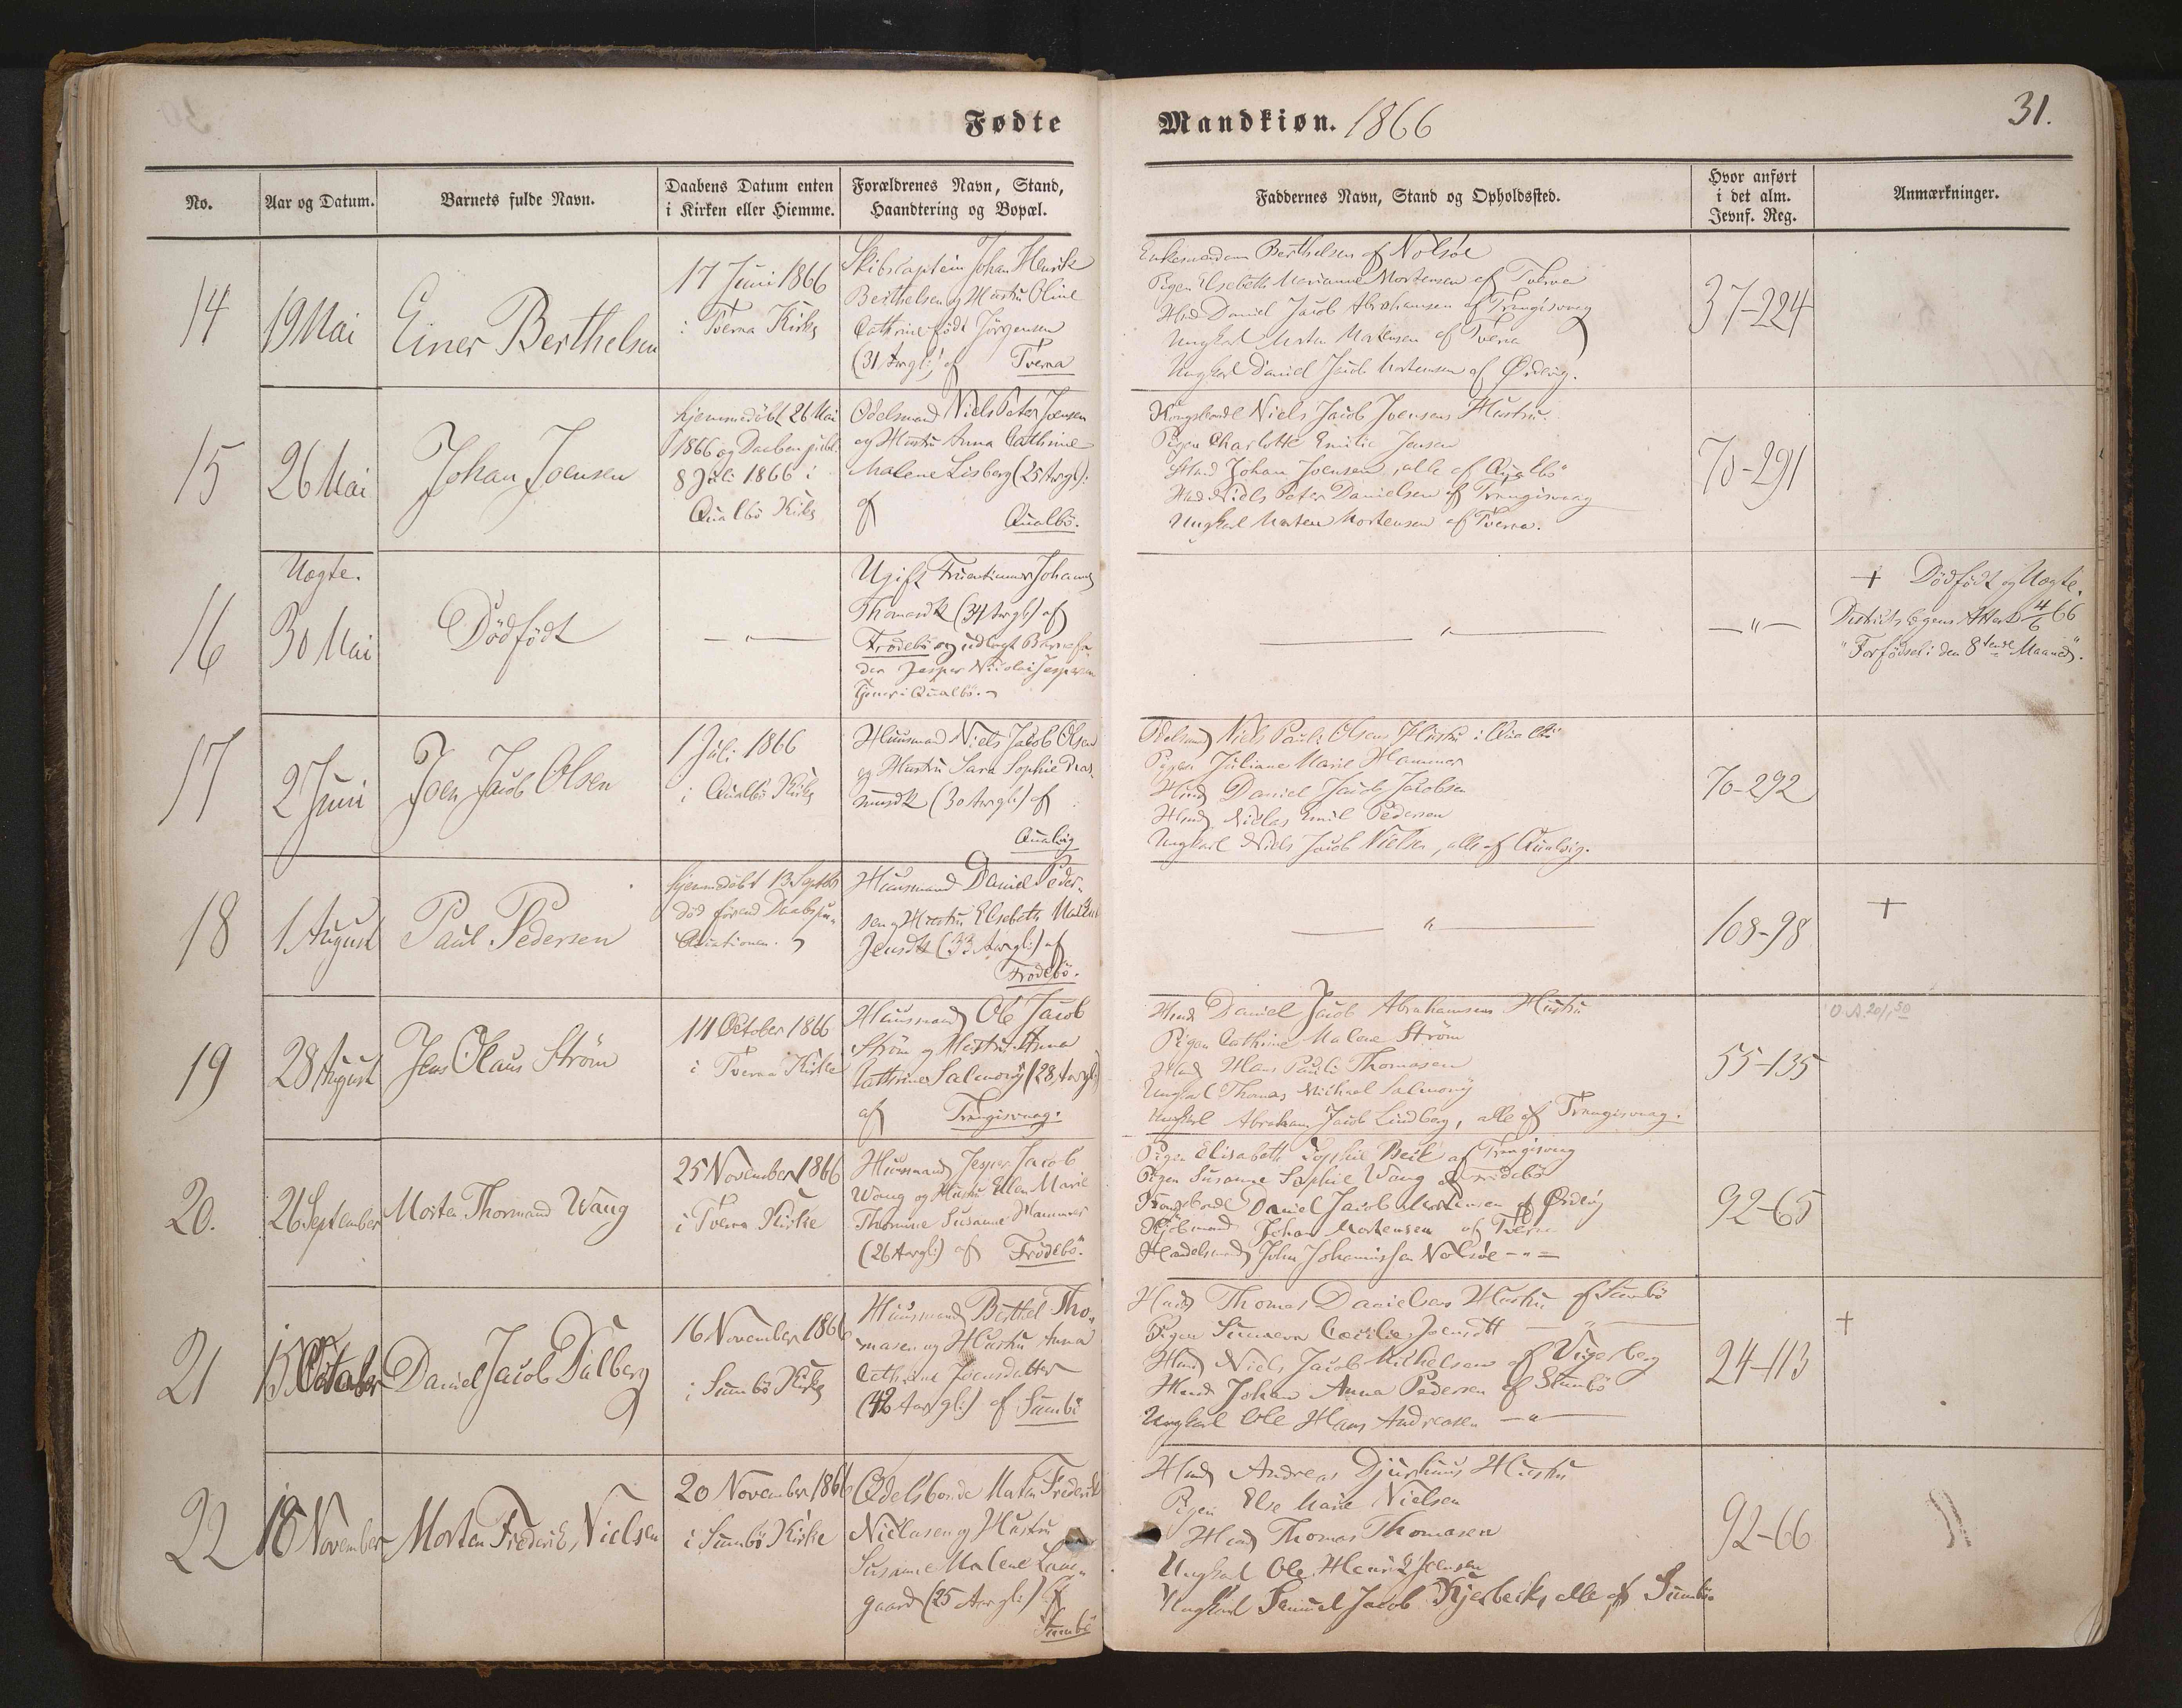 Fødte
Mandkiøn. 1866
31.
No.
Aar og Datum.
Barnets fulde Navn.
Daabens Datum enten
i Kirken eller Hiemme.
Forældrenes Navn, Stand,
Haandtering og Bopæl.
Faddernes Navn, Stand og Opholdssted.
Hvor anført
i det alm.
Jevnf. Reg.
Anmærkninger.
14
19 Mai
Einer Berthelsen
17 Juni 1866
i Tverna Kirke
Skibscaptein Johan Henrik
Berthelsen og Hustru Oline
Cathrine født Jörgensen
(31 Aar gl:) af Tverna
Berthelsen af Nolsöe
Pigen Elsebeth Marianne Mortensen af Tverna
Hmd Daniel Jacob Abrahamsen af Trangisvaag
Ungkarl Morten Mortensen af Tverna
Ungkarl Daniel Jacob Mortensen af Ördevig.
37-224
15
26 Mai
Johan Joensen
hjemmedöbt 26 Mai
1866 og Daaben publ.
8 Juli 1866 i
Qualbö Kirke
Odelsmand Niels Peter Joensen
og Hustru Anna Cathrine
Malene Lisberg (25 Aar gl):
af Qualbö.
Kongsbonde Niels Jacob Joensens Hustru.
Pigen Charlotte Emilie Jensen
Hmd Johan Joensen, alle af Qualbö
Hmd Niels Peter Danielsen af Trangisvaag
Ungkarl Morten Mortensen af Tverna.
70-291
16
Uægte.
30 Mai
Dödfödt
— " —
Ugift Fruentimmer Johanne
Thomasdtr (34 Aar gl:) af
Frodebö og udlagt Barnefa-
der Jesper Nicolai Jespersen
tjener i Qualbö.
— " —
— " —
+ Dödfödt og Uægte.
Districtslægens Attest 4/6 66
"Forfödsel i den 8tende Maaned".
17
2 Juni
Joen Jacob Olsen
1 Juli 1866
i Qualbö Kirke
Huusmand Niels Jacob Olsen
og Hustru Sara Sophie Ras-
musdtr (30 Aar gl:) af
Qualvig
Odelsmand Niels Pauli Olsens Hustru i Qualbö
Pigen Juliane Marie Hammer
Hmd Daniel Jacob Jacobsen
Hmd Niclas Emil Pedersen
Ungkarl Niels Jacob Nielsen, alle af Qualvig.
70-292
18
1 August
Paul Pedersen
hjemmedöbt 13 Septbr
död förend Daabspu-
Huusmand Daniel Peder-
sen og Hustru Elsebeth Malene
Jensdtr (33 Aar gl:) af
Frodebö.
— " —
108-98
+
19
28 August
Jens Olaus Ström
14 October 1866
i Tverna Kirke
Huusmand Ole Jacob
Ström og Hustru Anna
Cathrine Salmony (28 Aar gl)
af Trangisvaag.
Hmd Daniel Jacob Abrahamsens Hustru
Pigen Cathrine Malene Ström
Hmd Hans Pauli Thomasen
Ungkarl Thomas Michael Salmony
Ungkarl Abraham Jacob Lindberg, alle af Trangisvaag.
55-135
20.
26 September
Morten Thormand Wang
25 November 1866
i Tverna Kirke
Huusmand Jesper Jacob
Wang og Hustru Ellen Marie
Thomine Susanne Hammer
(26 Aar gl:) af Frodebö.
Pigen Elisabeth Sophie Beck af Trangisvaag
Pigen Susanne Sophie Wang af Frodebö
Kongsbonde Daniel Jacob Mortensen af Ördevig
Kjöbmand Johan Mortensen af Tverna
Handelsmand John Johannissen Nolsöe — " —
92-65
21
15 October
Daniel Jacob Dalberg
16 November 1866
i Sumbö Kirke
Huusmand Berthel Tho-
masen og Hustru Anna
Cathrine Joensdatter
(42 Aar gl:) af Sumbö
Hmd Thomas Danielsens Hustru af Sumbö
Pigen Sunneva Cecilie Joensdtr — " —
Hmd Niels Jacob Michelsen af Vigerberg
Hmd Johan Anna Pedersen af Sumbö
Ungkarl Ole Hans Andreasen — " —
24-113
+
22
18 November
Morten Frederik Nielsen
20 November 1866
i Sumbö Kirke
Odelsbonde Morten Frederik
Niclasen og Hustru
Susanne Malene Lane-
gaard (25 Aar gl:) af
Sumbö
Hmd Andreas Djurhuus Hustru
Pigen Else Marie Nielsen
Hmd Thomas Thomasen
Ungkarl Ole Henrik Joensen
Ungkarl Samuel Jacob Kjerbeck, alle af Sumbö.
92-66